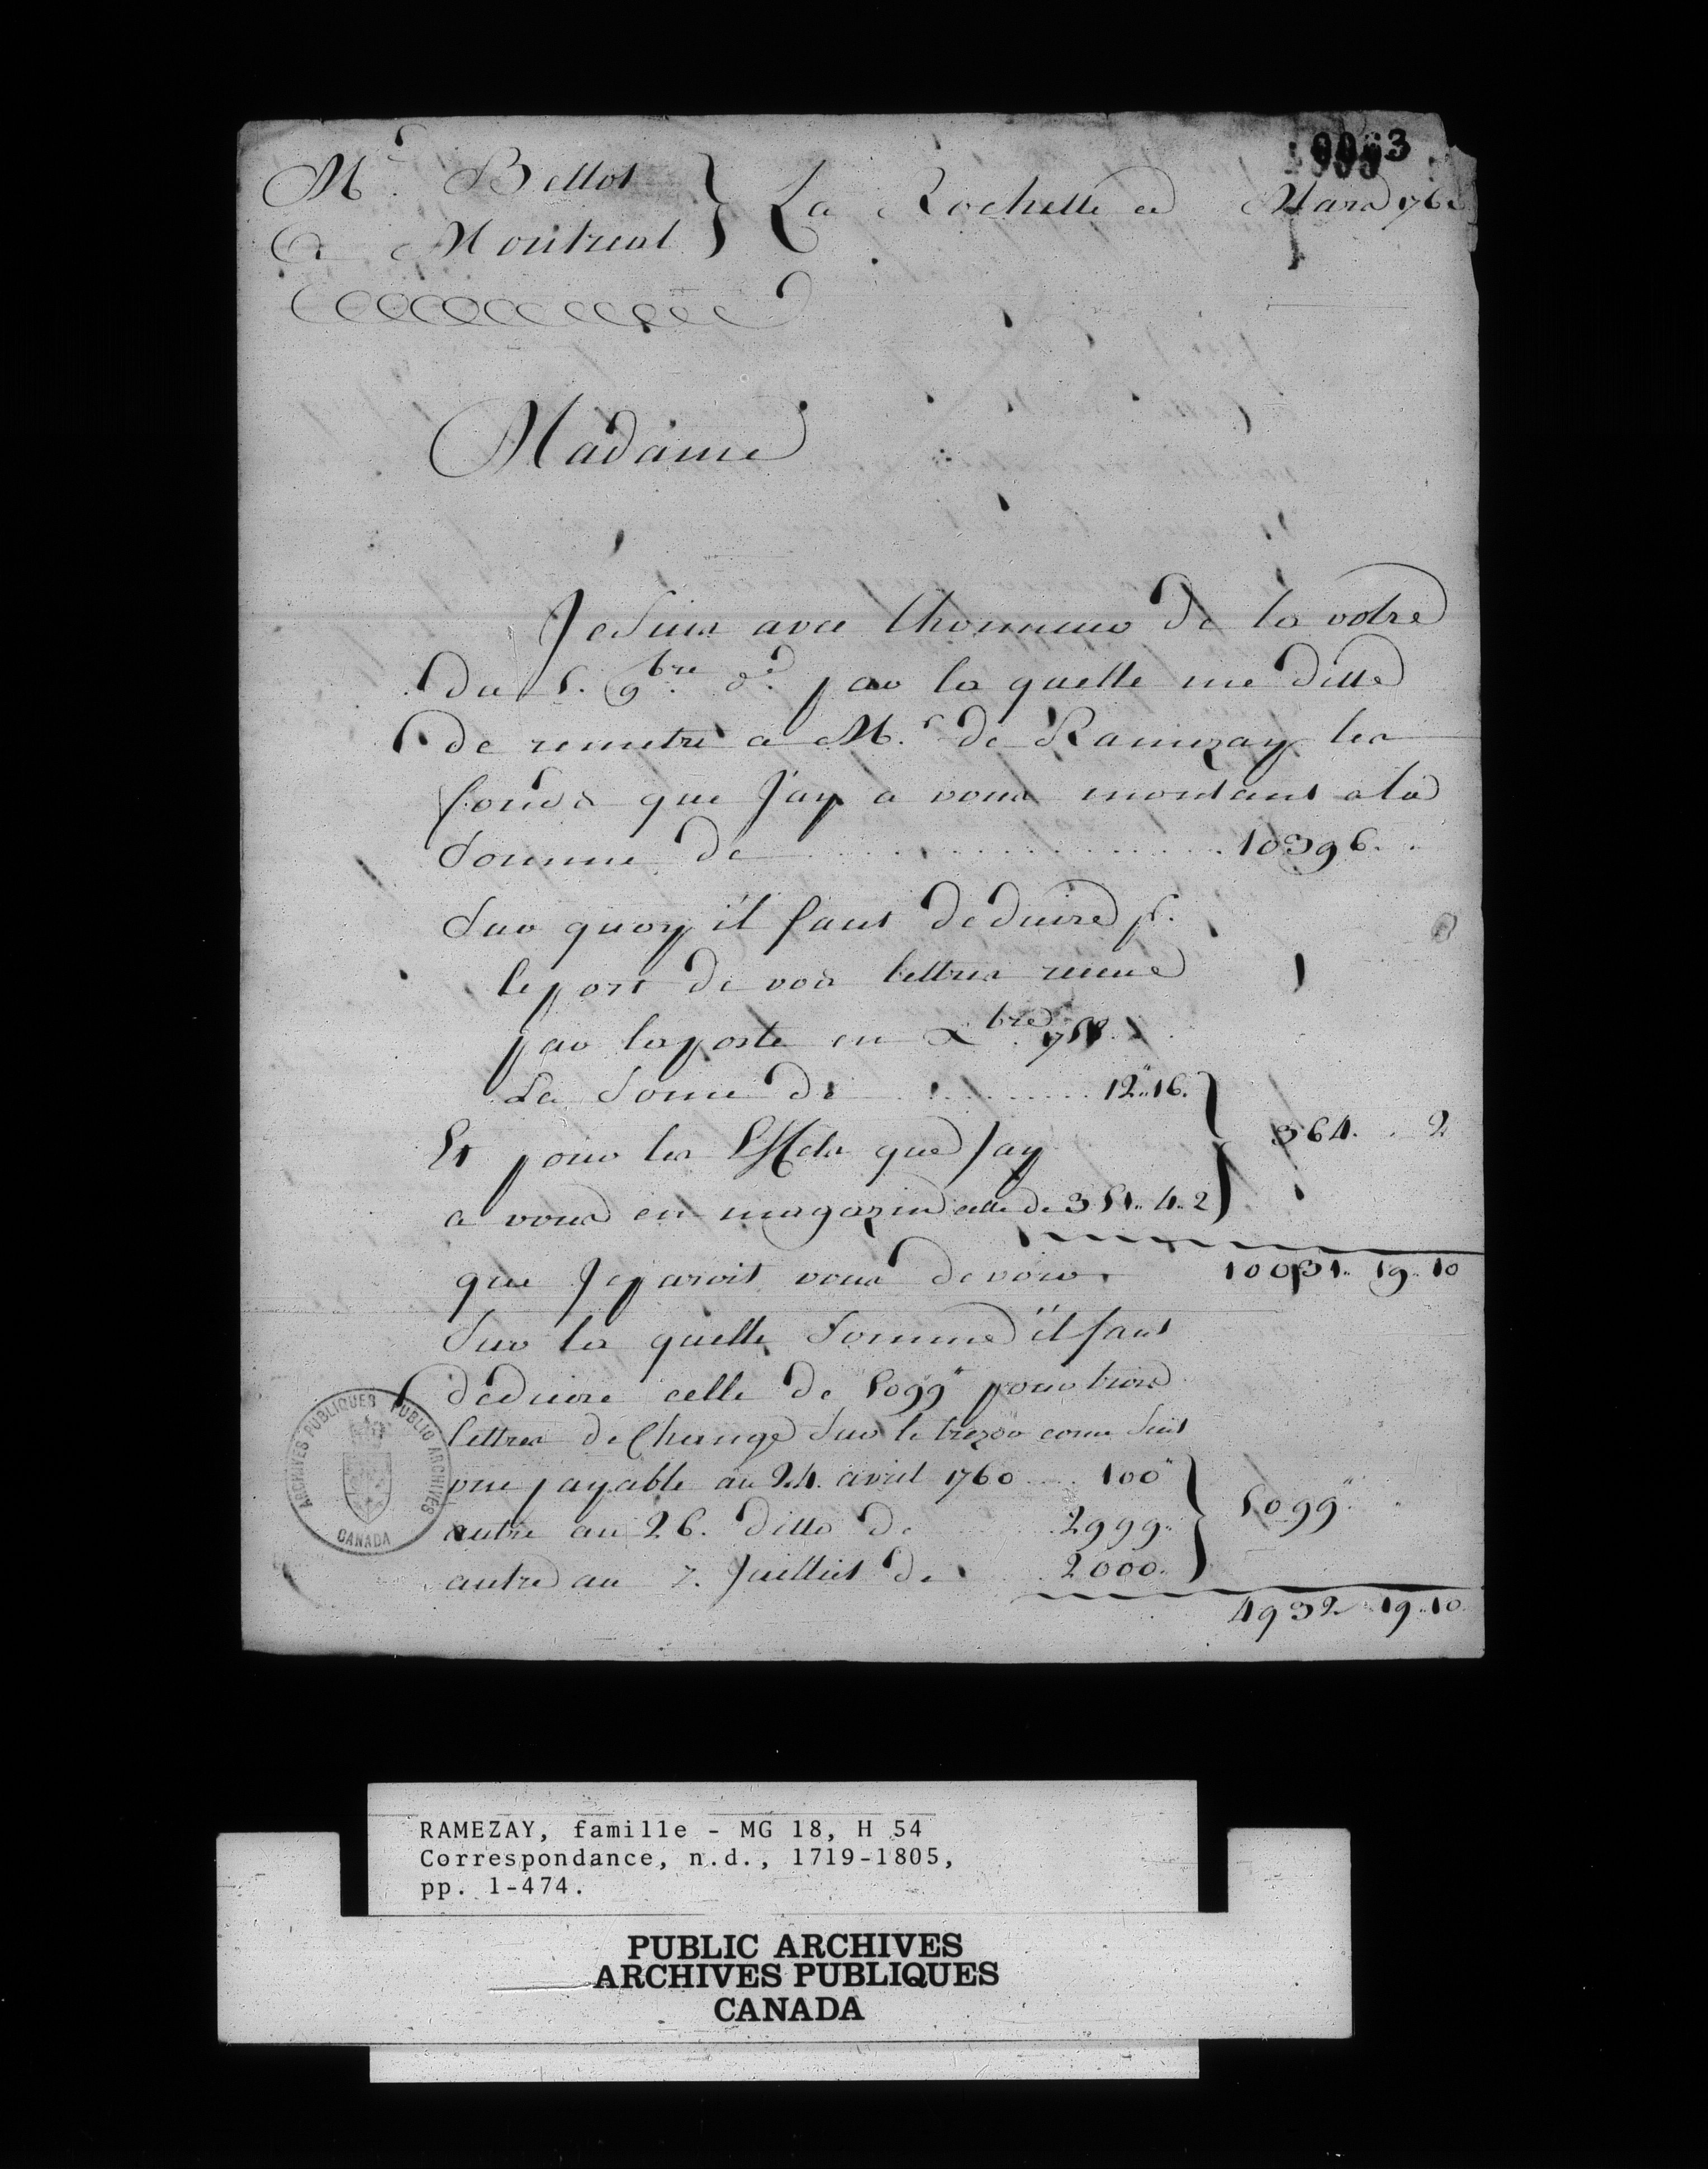 Mr. Bellot
a Montreal
La Rochelle ce Mars 176
Madame
Je suis avec lhonneur de la votre
du 5. 9bre dr. par la quelle me ditte
de remetre a Mr. de Ramezay les
fonds que J'ay a vous montant a la
Somme de 10396.
Sur quoy il faut deduire pr.
le port de vos lettres recue
par la poste en Xbre 758
La Some de 12" 16.
Et pour les Effets que Jay
a vous en magazin celle de 351.. 4.. 2
364. . 2
que Je paroit vous devoir 10031.. 19.. 10
Sur la quelle Somme il faut
deduire celle de 5099" pour trois
lettres de Change Sur le trezor come Suit
une payable au 24. avril 1760 100"
autre au 26. ditto de 2999.
autre au 7. Juillet de 2000.
5099"
4932 19..10
ARCHIVES PUBLIQUES PUBLIC ARCHIVES
CANADA
RAMEZAY, famille - MG 18, H 54
Correspondance, n.d., 1719-1805,
pp. 1-474.
PUBLIC ARCHIVES
ARCHIVES PUBLIQUES
CANADA